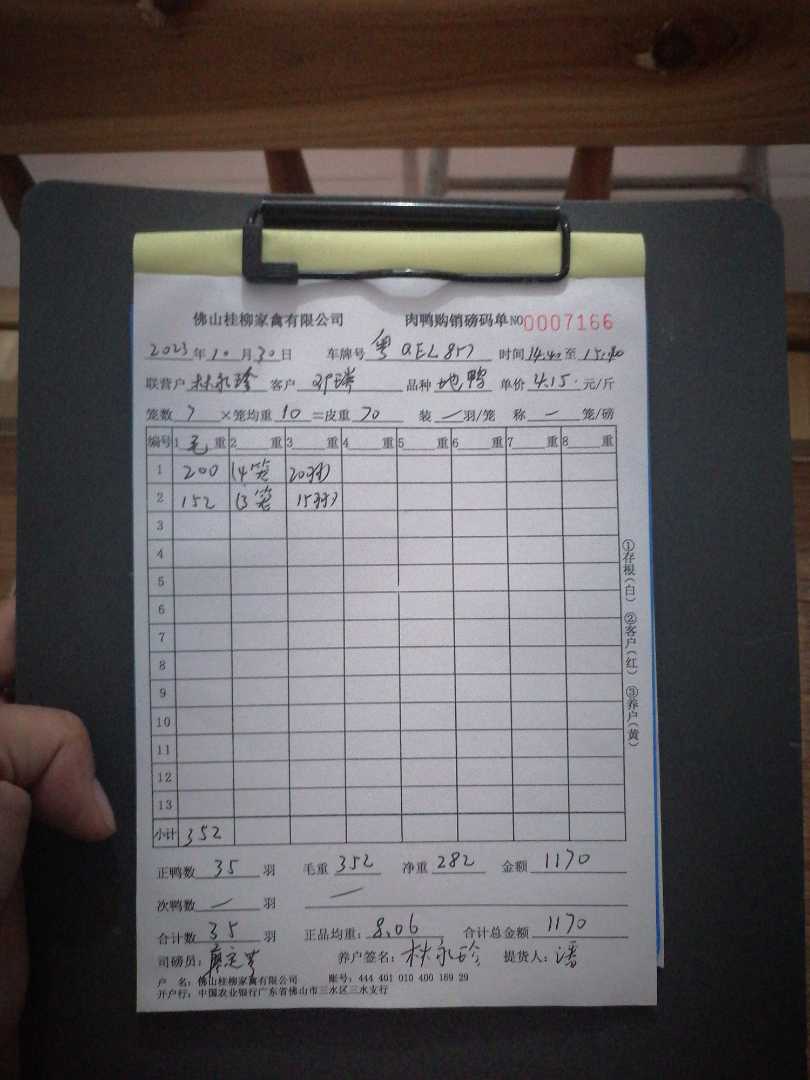 佛山桂柳家禽有限公司 肉鸭购销磅码单NO0007166
2023年10月30日 车牌号 粤 QEL857 时间14.40至15.40
联营户 林永珍 客户 邓 品种 地鸭 单价 4.15 元/斤
笼数 7 ×笼均重 10 =皮重 70 装 一 羽/笼 称 一 笼/磅
编号 1 毛 重 2 重 3 重 4 重 5 重 6 重 7 重 8 重
1 200 (4笼 20羽)
2 152 (3笼 15羽)
3
4
5
6
7
8
9
10
11
12
13
小计 352
①存根(白) ②客户(红) ③养户(黄)
正鸭数 35 羽 毛重 352 净重 282 金额 1170
次鸭数 一 羽 一
合计数 35 羽 正品均重: 8.06 合计总金额 1170
司磅员: 养户签名: 林永珍 提货人: 潘
户 名: 佛山桂柳家禽有限公司 账号: 444 401 010 400 169 29
开户行: 中国农业银行广东省佛山市三水区三水支行